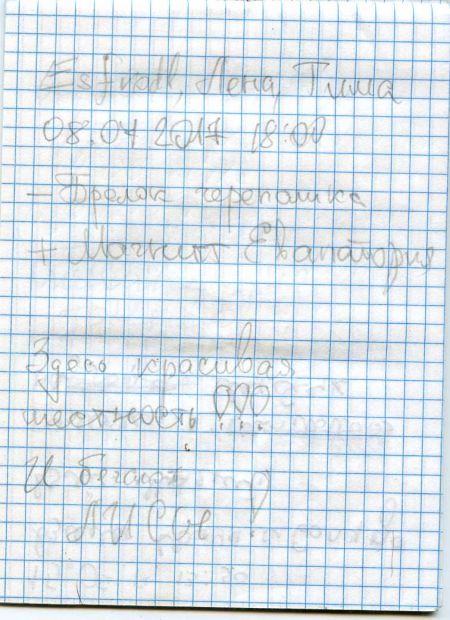 Лена, Тима
2017 18:00
- Брелок черепашка
+ Магнит Евпатория
Здесь красивая
местность!!!
И бегают
ЛИСЫ!